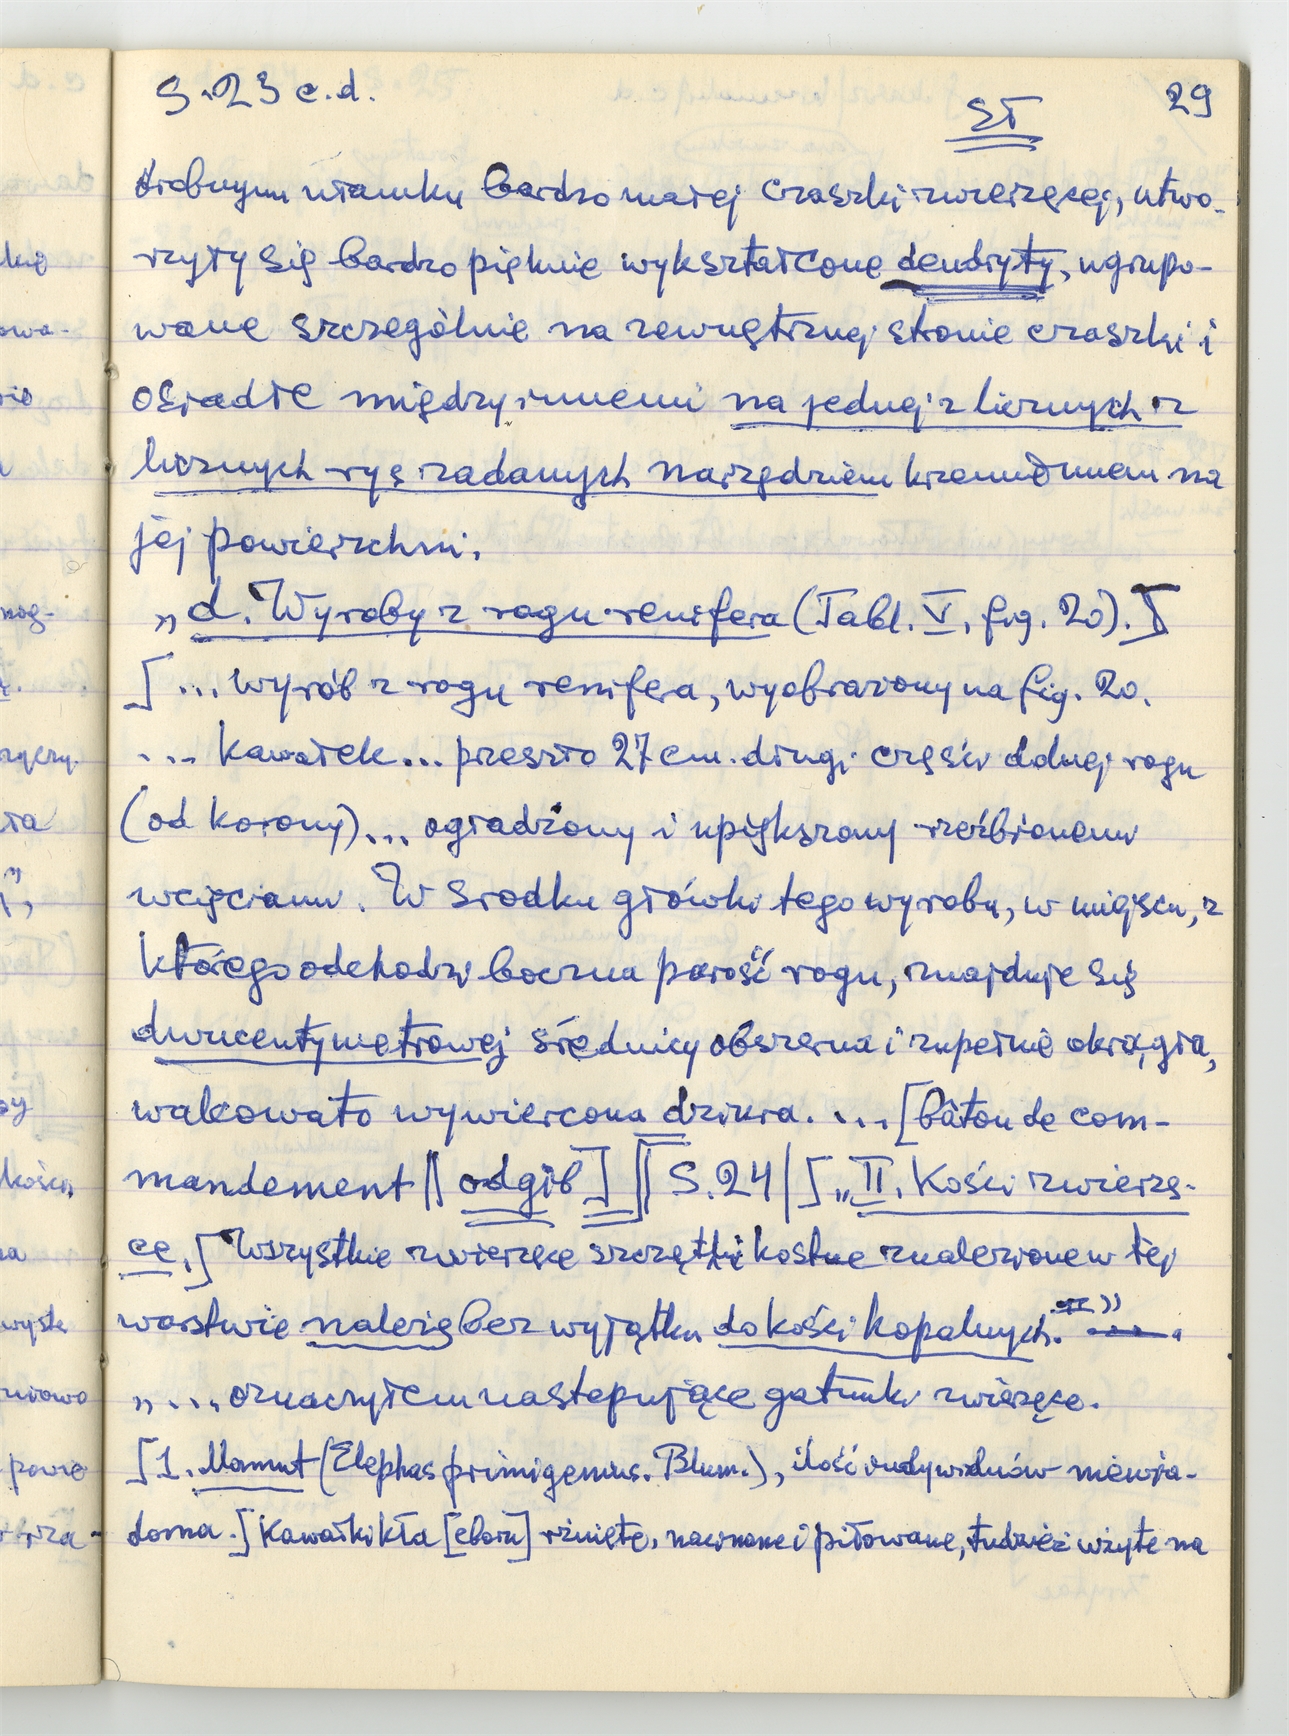 S. 23 c.d.
29
ST
drobnym ułamku bardzo małej czaszki zwierzęcej, utwo-
rzyły się bardzo pięknie wykształcone dendryty, ugrupo-
wane szczególnie na zewnętrznej stronie czaszki i
osiadłe między innemi na jednej z licznych z
licznych rys zadanych narzędziem krzemiennem na
jej powierzchni.
„d. Wyroby z rogu renifera (Tabl. V, fig. 20).]
[... wyrób z rogu renifera, wyobrażony na fig. 20.
... kawałek... przeszło 27 cm. długi części dolnej rogu
(od korony)... ogładzony i upiększony rzeźbionemi
wcięciami. W środku główki tego wyrobu, w miejscu, z
którego odchodzi boczna parość rogu, znajduje się
dwucentymetrowej średnicy obszerna i zupełnie okrągła,
walcowato wywiercona dziura. ... [bâton de com-
mandement || odgib]] || S. 24 | [„II. Kości zwierzę-
ce.] Wszystkie zwierzęce szczątki kostne znalezione w tej
warstwie należą bez wyjątku do kości kopalnych."
„... oznaczyłem następujące gatunki zwierzęce.
[1. Mamut (Elephas primigenius. Blum.), ilość indywiduów niewia-
doma.] Kawałki kła [eboru] rżnięte, nacinane i piłowane, tudzież użyte na